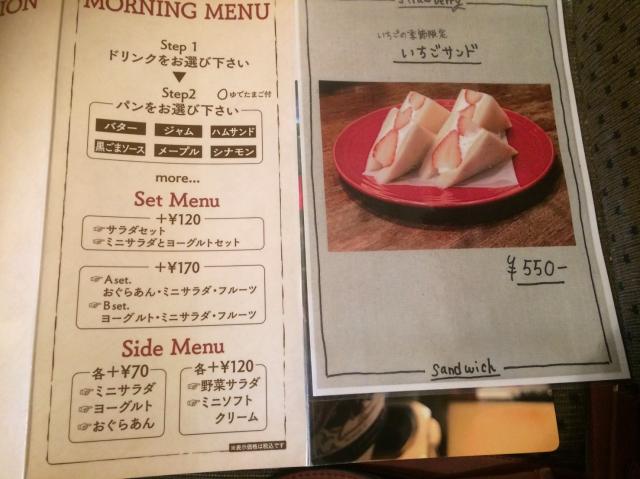 ION
MORNING MENU
Step 1
ドリンクをお選び下さい
▼
Step2 ○ゆでたまご付
パンをお選び下さい
バター ジャム ハムサンド
黒ごまソース メープル シナモン
more...
Set Menu
+¥120
☞サラダセット
☞ミニサラダとヨーグルトセット
+¥170
☞A set.
おぐらあん・ミニサラダ・フルーツ
☞B set.
ヨーグルト・ミニサラダ・フルーツ
Side Menu
各+¥70
☞ミニサラダ
☞ヨーグルト
☞おぐらあん
各+¥120
☞野菜サラダ
☞ミニソフト
クリーム
※表示価格は税込です
strawberry
いちごの季節限定
いちごサンド
¥550-
sandwich